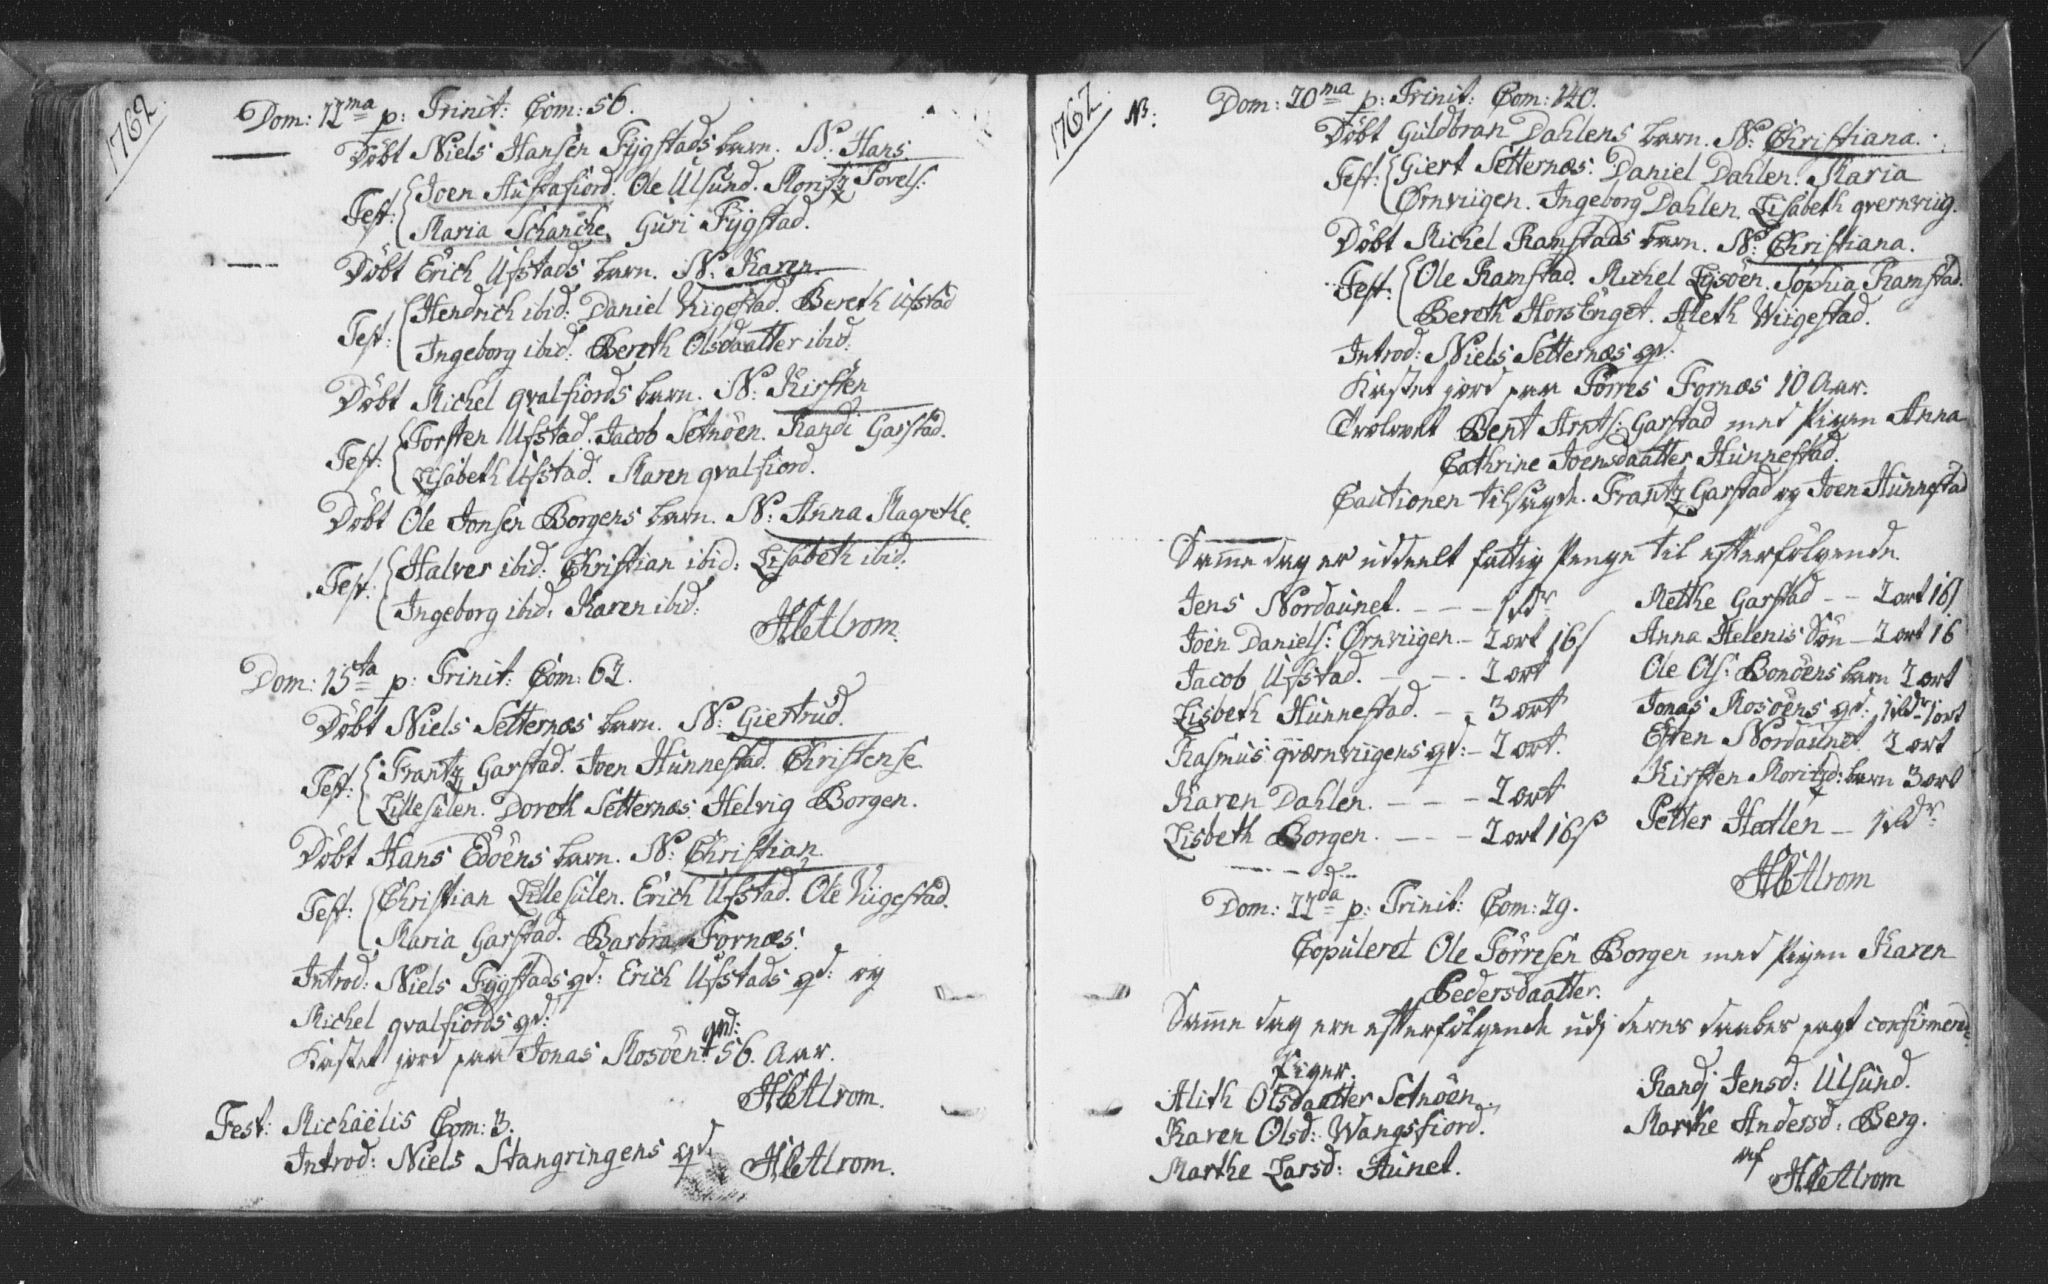 1762.
Dom: 12ma p: Trinit: Com: 56.
Döbt Niels Hansen Fygstads barn. N: Hans
Test: Joen Austafiord. Ole Ulsund. Moritz Povels:
Maria Schanche, Guri Fygstad.
Döbt Erich Ufstads barn. N: Karen.
Test: Hendrich ibid: Daniel Viigestad. Bereth Ufstad
Ingeborg ibid: Bereth Olsdaatter ibid:
Döbt Michel qvalfiords barn. N: Kirsten
Test: Torsten Ufstad. Jacob Setnöen. Randi Garstad.
Lisabeth Ufstad. Maren qvalfiord.
Döbt Ole Jonsen Borgens barn. N: Anna Magrethe.
Test: Halver ibid: Christian ibid: Lisabeth ibid:
Ingeborg ibid: Karen ibid:
HCAlrom.
Dom: 15ta p: Trinit: Com: 62.
Döbt Niels Setternæs barn. N: Giertrud.
Test: Frantz Garstad. Joen Hunnestad. Christense
Lillesulen. Doroth Setternæs. Helvig Borgen.
Döbt Hans Edöens barn. N: Christian
Test: Christian Lillesulen. Erich Ufstad. Ole Viigestad.
Maria Garstad. Barbra Fornæs.
Introd: Niels Fygstads qd: Erich Ufstads qd: og
Michel qvalfiords qd:
Kastet jord paa Jonas Mosöens qvd: 56. Aar.
HCAlrom.
Fest: Michaëlis Com: 3.
Introd: Niels Stangringens qd. HCAlrom.
1762. NB:
Dom: 20ma p: Trinit: Com: 140.
Döbt Guldbran Dahlens barn. N: Christiana.
Test: Giert Setternæs. Daniel Dahlen. Maria
Ørnviigen. Ingeborg Dahlen. Lisabeth qvernviig.
Döbt Michel Ramstads barn. N: Christiana.
Test: Ole Ramstad. Michel Lysöen. Sophia Ramstad.
Bereth HorsEnget. Aleth Wiigestad.
Introd: Niels Setternæs qd:
Kastet jord paa Törres Fornæs 10 Aar.
Trolovet Bent Arnts: Garstad med Pigen Anna
Cathrine Joensdaatter Hunnestad.
Cautionen tilsagde. Frantz Garstad og Joen Hunnestad
Samme dag er uddeelt fattig Penge til efterfölgende
Jens Nordaunet. - - - 1 rdr
Joen Daniels: Ørnviigen - 2 ort 16 s
Jacob Ufstad. - - - 2 ort
Lisbeth Hunnestad. - - 3 ort
Rasmus qværnviigens qd: - 2 ort.
Karen Dahlen. - - - 2 ort
Lisbeth Borgen. - - - 2 ort 16 s
Methe Garstad - - 2 ort 16 s
Anna Helenis Sön - 2 ort 16
Ole Ols: Bonöens barn 2 ort
Jonas Mosöens qd: 1 rdr 1 ort
Esten Nordaunet. 2 ort
Kirsten Moritzd: barn 3 ort
Petter Hatlen - 1 rdr.
HCAlrom
Dom: 22da p: Trinit: Com: 29.
Copuleret Ole Törresen Borgen med Pigen Karen
Pedersdaatter.
Samme dag ere efterfölgende udi deres daabes pagt confirmerede
Piger.
Alith Olsdaatter Setnöen.
Karen Olsd: Wangsfiord.
Marthe Larsd: Aunet.
Randj Jensd: Ulsund.
Marthe Andersd: Berg.
af
HCAlrom